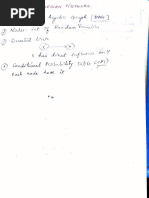 NETWORK
Acyclic Graph [DAG]
② Nodes: Set of Random Variables
③ Directed Links
X
Y
X has direct influence on Y
④ Conditional Probability table (CPT)
Each node have it